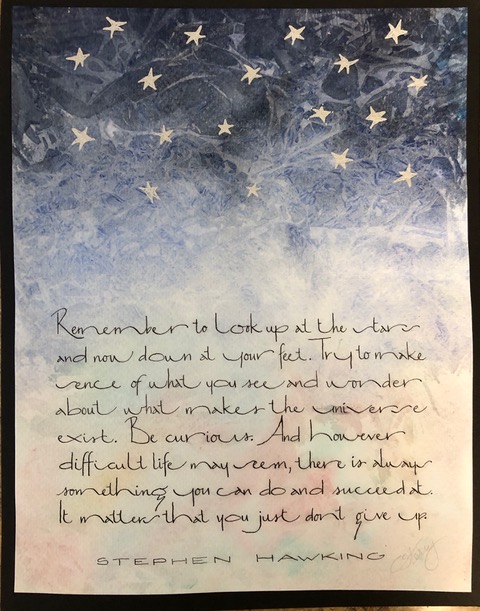 Remember to look up at the stars
and now down at your feet. Try to make
sence of what you see and wonder
about what makes the universe
exist. Be curious. And however
difficult life may seem, there is always
something you can do and succeed at.
It matters that you just dont give up.
STEPHEN HAWKING